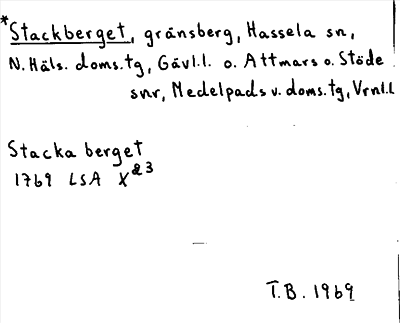 *Stackberget, gränsberg, Hassela sn,
N. Häls. doms.tg, Gävl.l. o. Attmars o. Stöde
snr, Medelpads v. doms.tg, Vrnl.l
Stacka berget
1769 LSA X 23
T.B. 1969